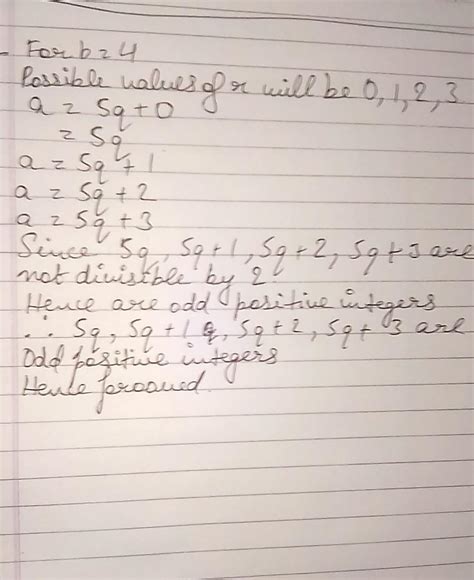 - For b = 4
Possible values of r will be 0, 1, 2, 3
a = 5q + 0
= 5q
a = 5q + 1
a = 5q + 2
a = 5q + 3
Since 5q, 5q+1, 5q+2, 5q+3 are
not divisible by 2.
Hence are odd positive integers
∴ 5q, 5q+1 &, 5q+2, 5q+3 are
Odd positive integers
Hence prooved.